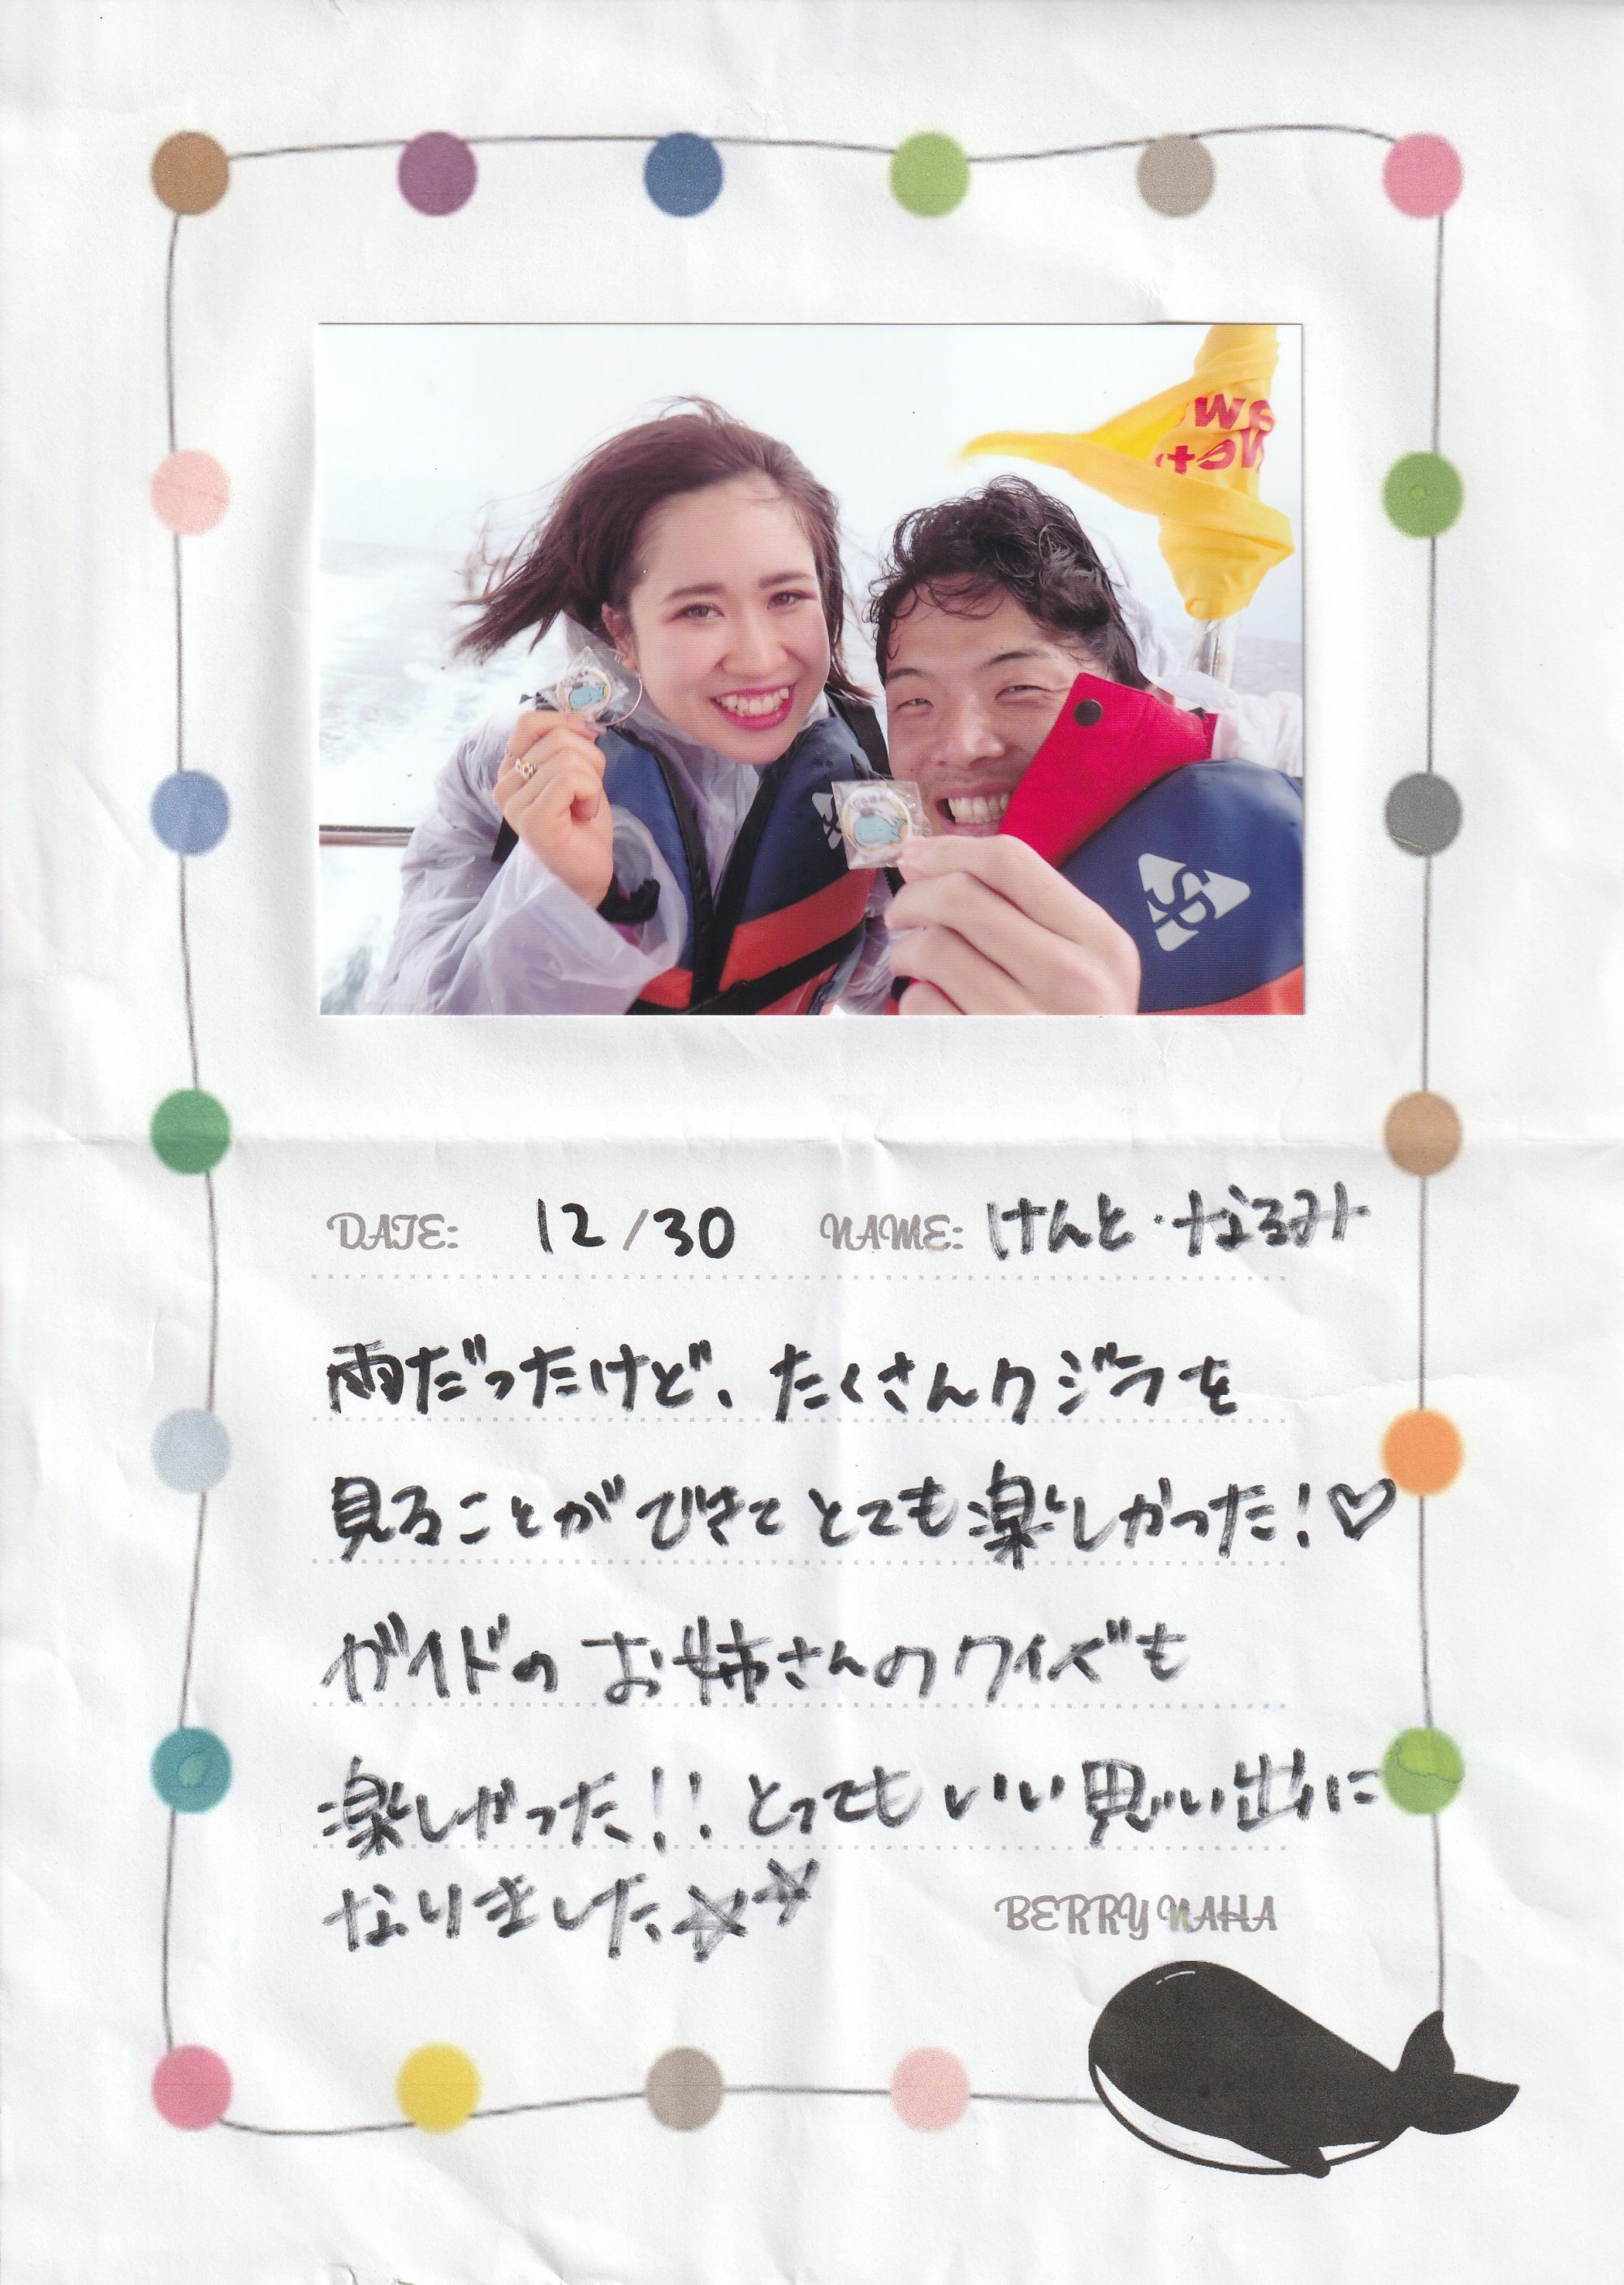 DATE: 12/30 NAME: けんと・なるみ
雨だったけど、たくさんクジラを
見ることができてとても楽しかった!♡
ガイドのお姉さんのクイズも
楽しかった!! とってもいい思い出に
なりました☆☆
BERRY NAHA